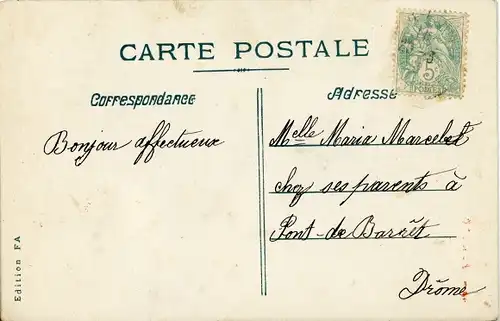 CARTE POSTALE
Correspondance
Adresse
Bonjour affectueux
Melle Maria Marcebel
chez ses parents à
Pont-de-Barrêt
Drôme
Edition FA
5